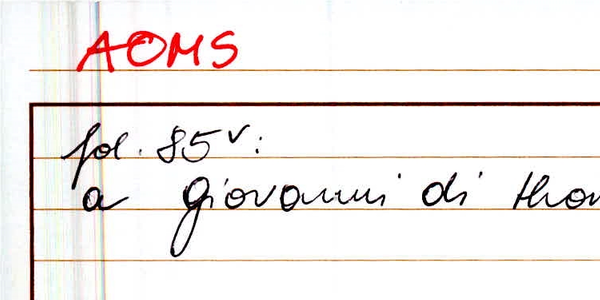 AOMS
fol. 85v:
a Giovanni di